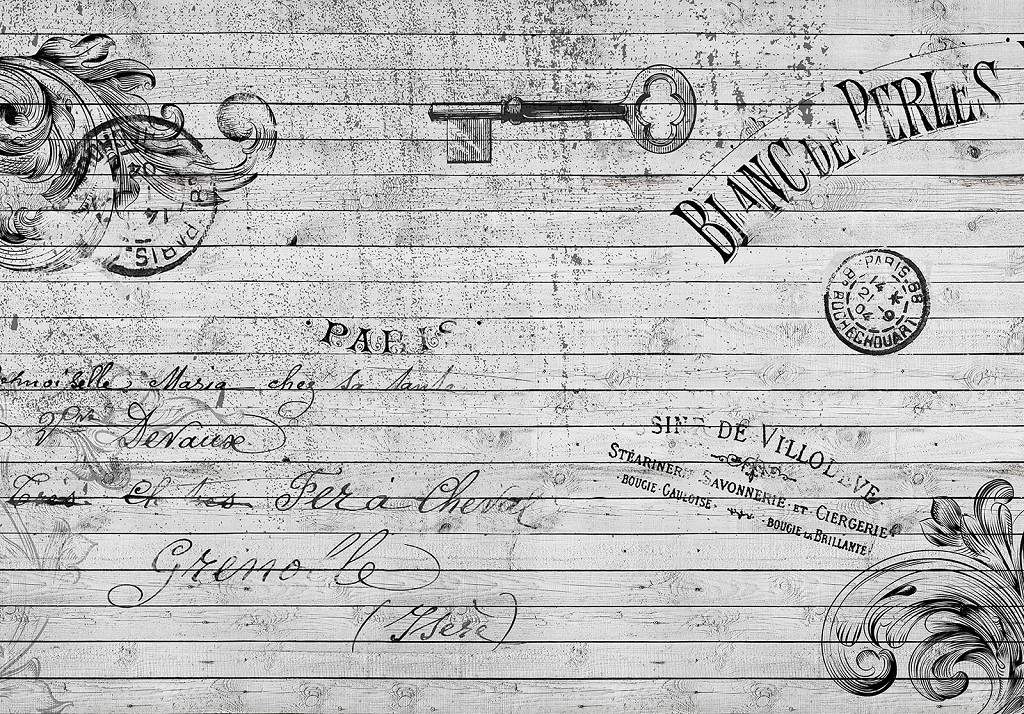 BLANC DE PERLES
PARIS
PARIS.68
14
21
04
Bd ROCHECHOUART
PARIS
Maria chez sa tante
Vve Devaux
Fer à Cheval
Grenoble
(Isère)
DE VILLOL
STÉARINERIE SAVONNERIE ET CIERGERIE
BOUGIE GAULOISE. BOUGIE LA BRILLANTE